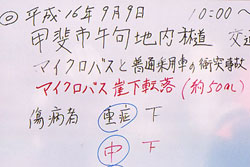 ◎平成16年9月9日 10:00~
甲斐市午句地内林道 交通
マイクロバスと普通乗用車の衝突事故
マイクロバス崖下転落(約50m)
傷病者 重症 下
中 下